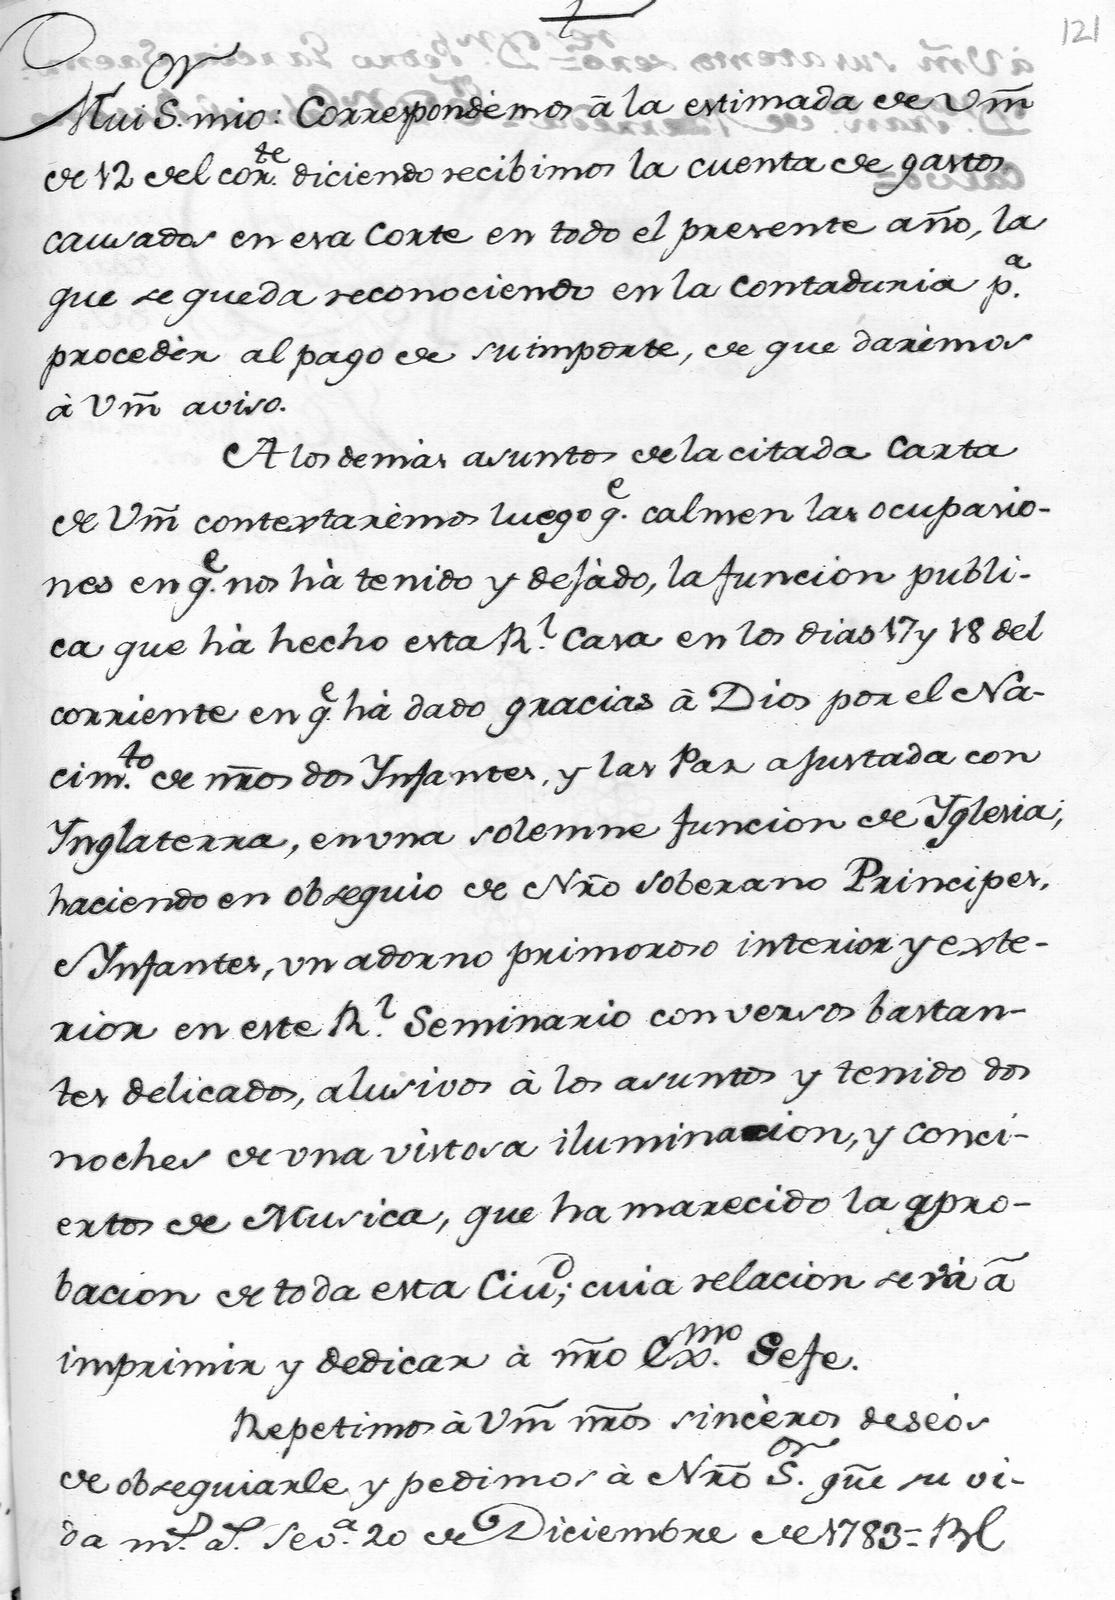 121
Mui S.or mio: Correspondemos â la estimada de Vm̃
de 12 del cor.te diciendo recibimos la cuenta de gastos
causados en esa Corte en todo el presente año, la
que se queda reconociendo en la Contaduria p.a
procedèr al pago de su importe, de que darèmos
à Vm̃ aviso.
A los demàs asuntos de la citada Carta
de Vm̃ contextarèmos luego q.e calmen las ocupasio-
nes en q.e nos hà tenido y dejàdo, la funcion publi-
ca que hà hecho esta R.l Casa en los dias 17 y 18 del
corriente en q.e hà dado gracias à Dios por el Na-
cim.to de ñros dos Infantes, y las Paz ajustada con
Ynglaterra, en una solemne funcion de Yglesia;
haciendo en obsequio de Nr̃o soberano Principes,
e Ynfantes, un adorno primoroso interior y exte-
rior en este R.l Seminario con versos bastan-
tes delicados, alusivos à los asuntos y tenido dos
noches de una vistosa iluminacion, y conci-
ertos de Musica, que ha marecido la apro-
bacion de toda esta Ciud; cuia relacion se và â
imprimir y dedicar à ñro Ex.mo Gefe.
Repetimos à Vm̃ ñros sincèros deseòs
de obsequiarle y pedimos à Nr̃o S.or gũe su vi-
da m.s a.s Sev.a 20 de Diciembre de 1783 =